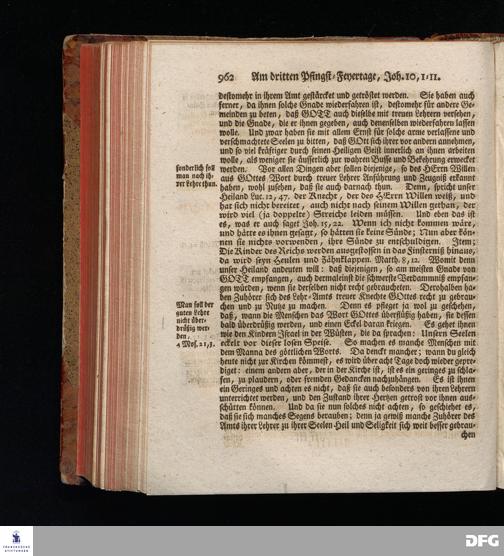 962 Am dritten Pfingst-Feyertage, Joh. 10, 1-11.
destomehr in ihrem Amt gestärcket und getröstet werden. Sie haben auch
ferner, da ihnen solche Gnade wiederfahren ist, destomehr für andere Ge-
meinden zu beten, daß GOTT auch dieselbe mit treuen Lehrern versehen,
und die Gnade, die er ihnen gegeben, auch denenselben wiederfahren lassen
wolle. Und zwar haben sie mit allem Ernst für solche arme verlassene und
verschmachtete Seelen zu bitten, daß GOtt sich ihrer vor andern annehmen,
und so viel kräftiger durch seinen Heiligen Geist innerlich an ihnen arbeiten
wolle, als weniger sie äusserlich zur wahren Busse und Bekehrung erwecket
werden. Vor allen Dingen aber sollen diejenige, so des HErrn Willen
aus GOttes Wort durch treuer Lehrer Anführung und Zeugniß erkannt
haben, wohl zusehen, daß sie auch darnach thun. Denn, spricht unser
Heiland Luc. 12, 47. der Knecht, der des HErrn Willen weiß, und
hat sich nicht bereitet, auch nicht nach seinem Willen gethan, der
wird viel (ja doppelte) Streiche leiden müssen. Und eben das ist
es, was er auch saget Joh. 15, 22. Wenn ich nicht kommen wäre,
und hätte es ihnen gesagt, so hätten sie keine Sünde; Nun aber kön-
nen sie nichts vorwenden, ihre Sünde zu entschuldigen. Item:
Die Kinder des Reichs werden ausgestossen in das Finsterniß hinaus,
da wird seyn Heulen und Zähnklappen. Matth. 8, 12. Womit denn
unser Heiland andeuten will: daß diejenigen, so am meisten Gnade von
GOTT empfangen, auch dermaleinst die schwerste Verdammniß empfan-
gen würden, wenn sie derselben nicht recht gebraucheten. Derohalben ha-
ben Zuhörer sich des Lehr-Amts treuer Knechte GOttes recht zu gebrau-
chen und zu Nutz zu machen. Denn es pfleget ja wol zu geschehen,
daß, wann die Menschen das Wort GOttes überflüßig haben, sie dessen
bald überdrüßig werden, und einen Eckel daran kriegen. Es gehet ihnen
wie den Kindern Israel in der Wüsten, die da sprachen: Unsern Seelen
eckelt vor dieser losen Speise. So machen es manche Menschen mit
dem Manna des göttlichen Worts. Da dencket mancher; wann du gleich
heute nicht zur Kirchen kömmest, es wird über acht Tage doch wieder gepre-
diget: einem andern aber, der in der Kirche ist, ist es ein geringes zu schla-
fen, zu plaudern, oder fremden Gedancken nachzuhängen. Es ist ihnen
ein Geringes und achten es nicht, daß sie auch besonders von ihren Lehrern
unterrichtet werden, und den Zustand ihrer Hertzen getrost vor ihnen aus-
schütten können. Und da sie nun solches nicht achten, so geschiehet es,
daß sie sich manches Segens berauben; denn ja gewiß manche Zuhörer des
Amts ihrer Lehrer zu ihrer Seelen Heil und Seligkeit sich weit besser gebrau-
chen
sonderlich soll
man nach ih-
rer Lehre thun.
Man soll der
guten Lehre
nicht über-
drüßig wer-
den,
4 Mos. 21, 5.
FRANCKESCHE
STIFTUNGEN
DFG